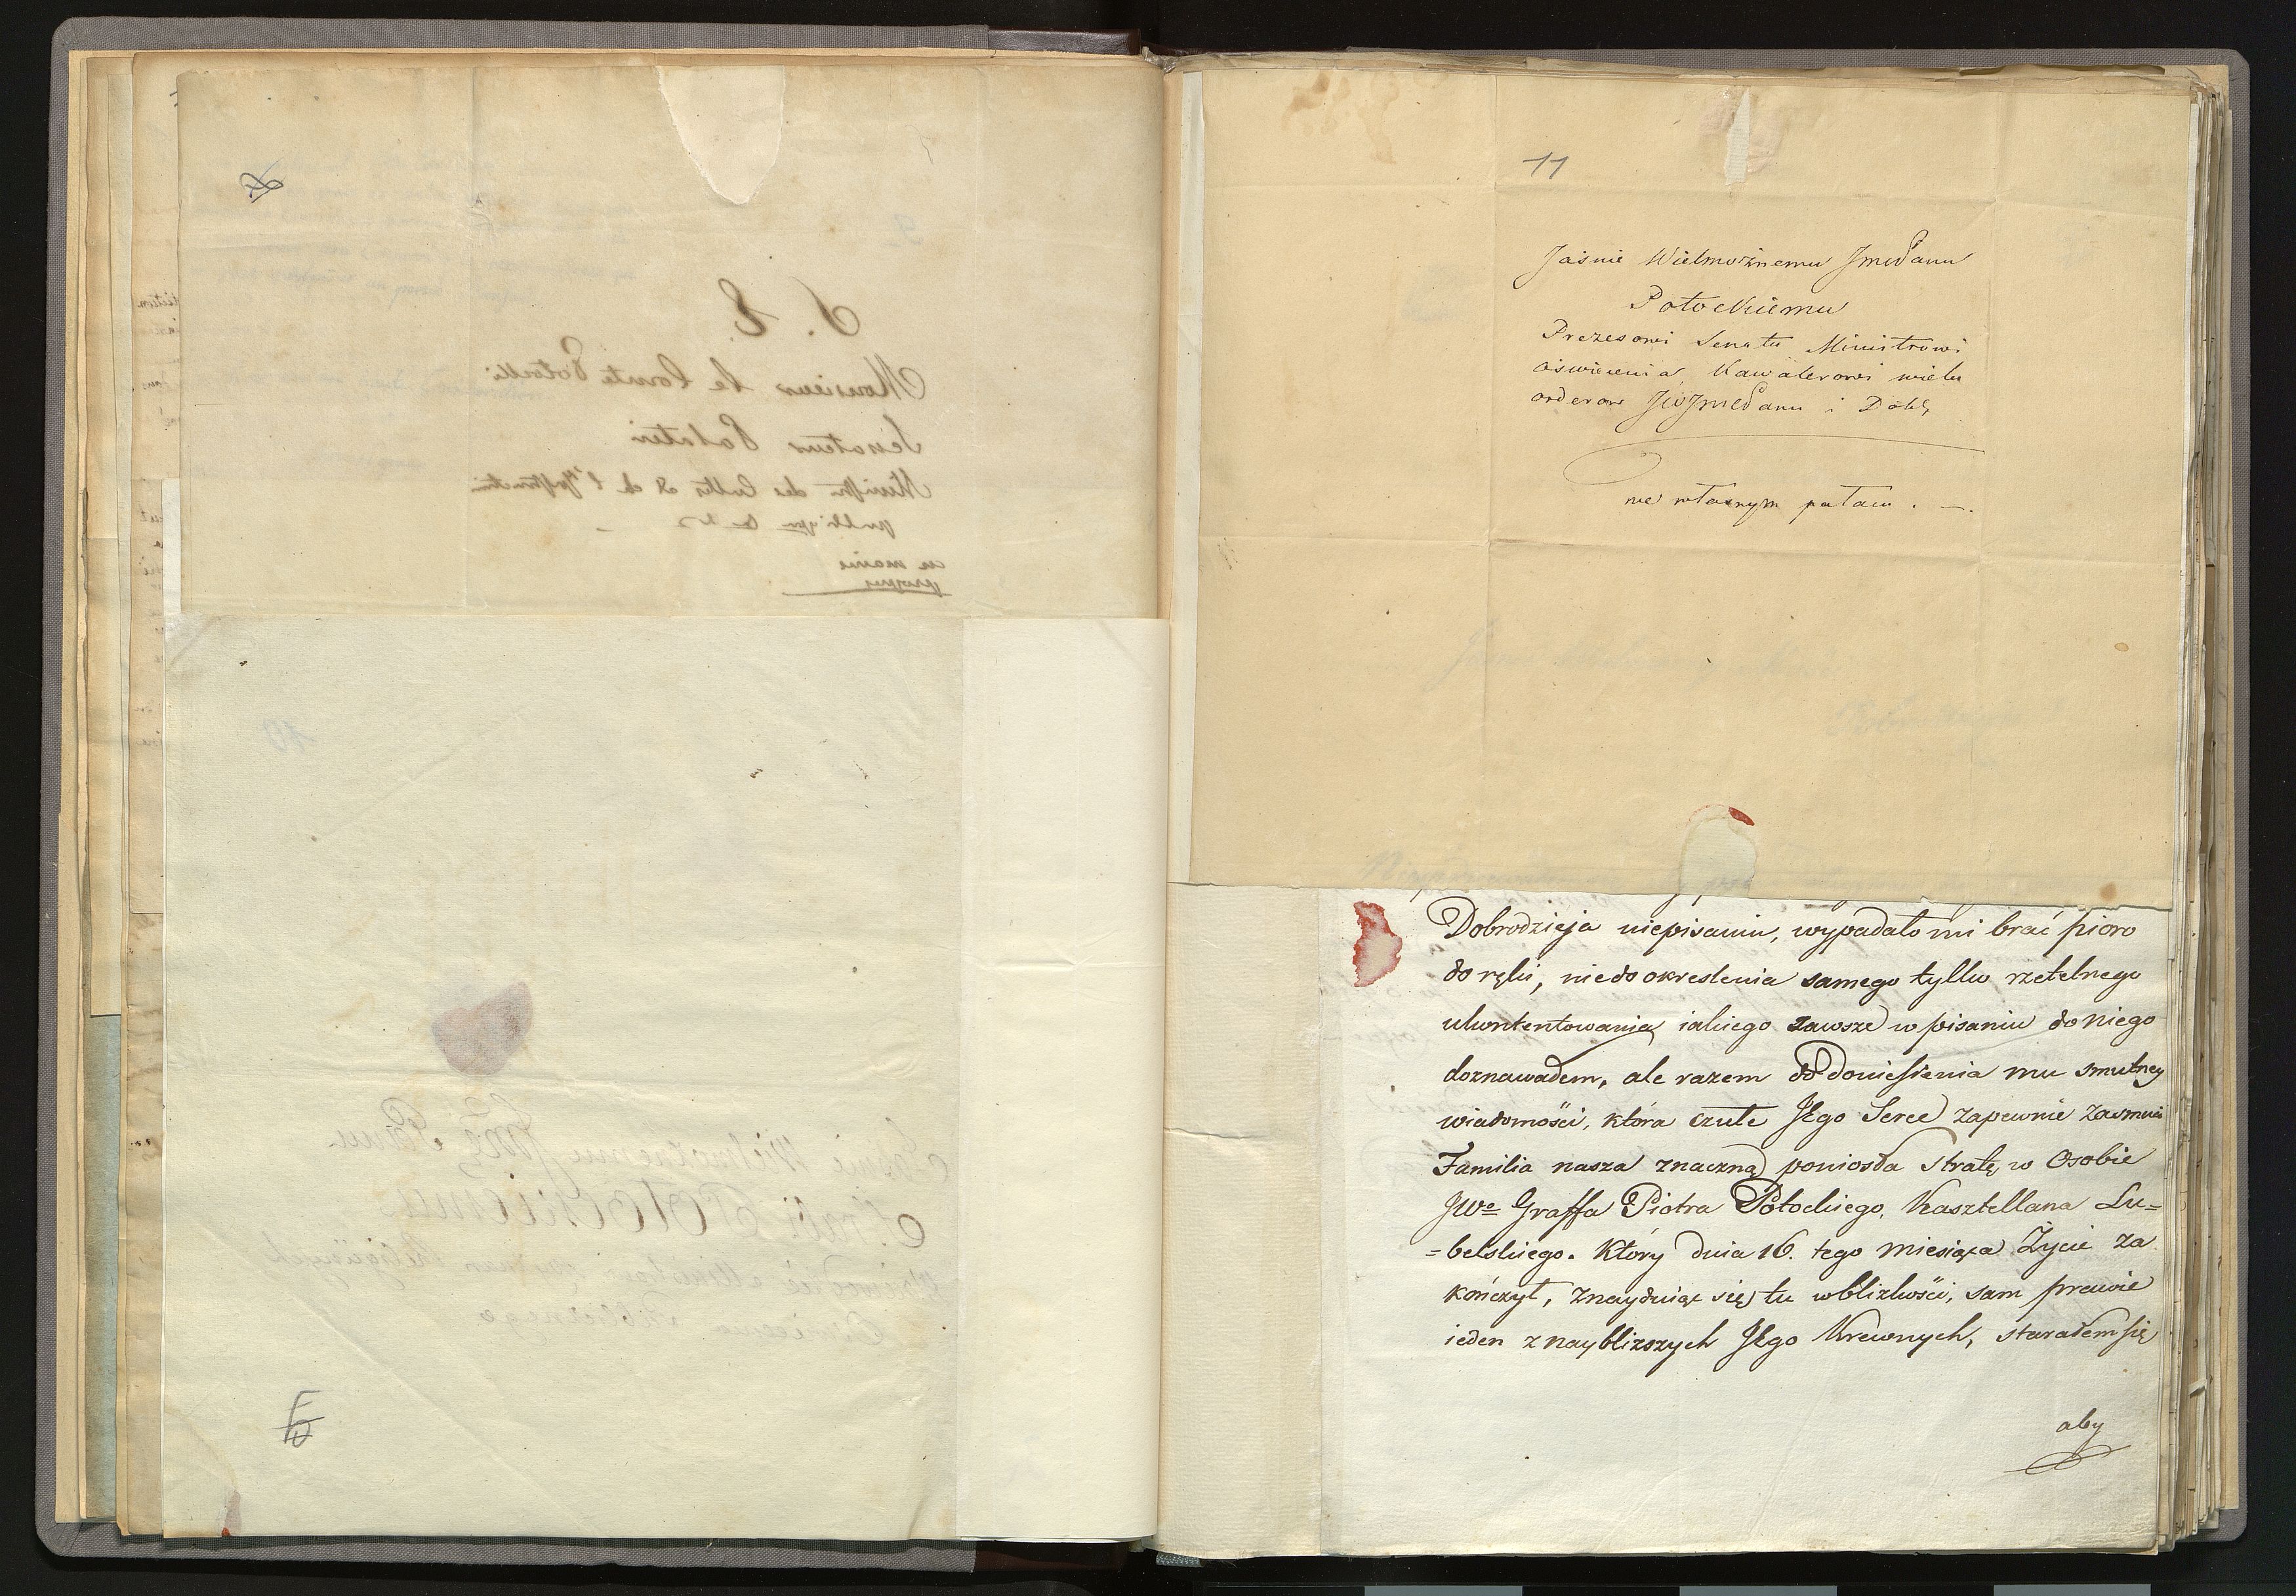 S. E.
Monsieur le Comte Potocki
Senateur Palatin
Ministre des Cultes et de l'Instruction
publique
en mains
propres
10
Jaśnie Wielmożnemu Jmć Panu
Potockiemu
11
Jaśnie Wielmożnemu JmćPanu
Potockiemu
Prezesowi Senatu Ministrowi
oświecenia Kawalerowi wielu
orderow JWJmćPanu i Dobẽ
we własnym pałacu . —.
Dobrodzieja niepisaniu, wypadało mi brać pioro
do ręki, niedo okreslenia samego tylko rzetelnego
ukontentowania iakiego zawsze w pisaniu do niego
doznawałem, ale razem do doniesienia mu smutney
wiadomości, która czułe Jego Serce zapewnie zasmuci
Familia nasza znaczną poniosła stratę w Osobie
JWo Graffa Piotra Potockiego, Kasztellana Lu=
=belskiego. Który dnia 16. tego miesiąca Życie za
kończył, znayduiąc się tu wblizkości, sam prawie
ieden z naybliższych Jego Krewnych, starałem się
aby